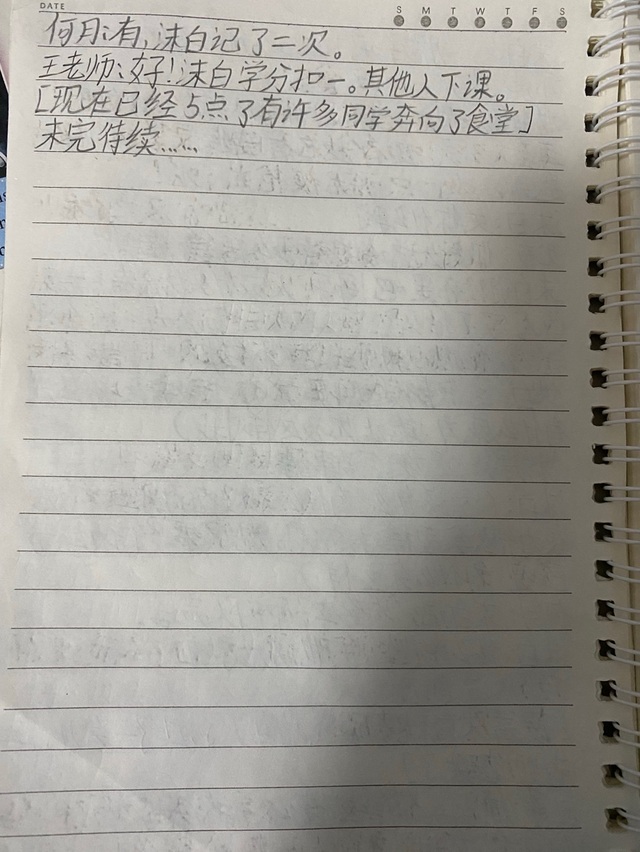 DATE
S M T W T F S
何月:有,沫白记了二次。
王老师:好!沫白学分扣一。其他人下课。
[现在已经5点了有许多同学奔向了食堂]
未完待续……